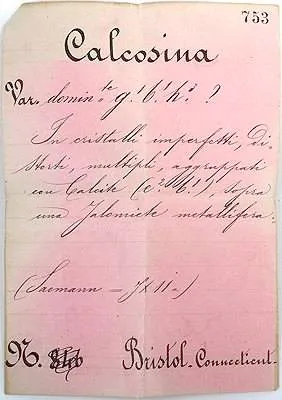 753
Calcosina
Var. domin.te g'. b'. h3. ?
In cristalli imperfetti, di-
storti, multipli, aggruppati
con Calcite (e2 b1), sopra
una Jalomicte metallifera.
(Saemann — 7 XII
N. Bristol - Connecticut -